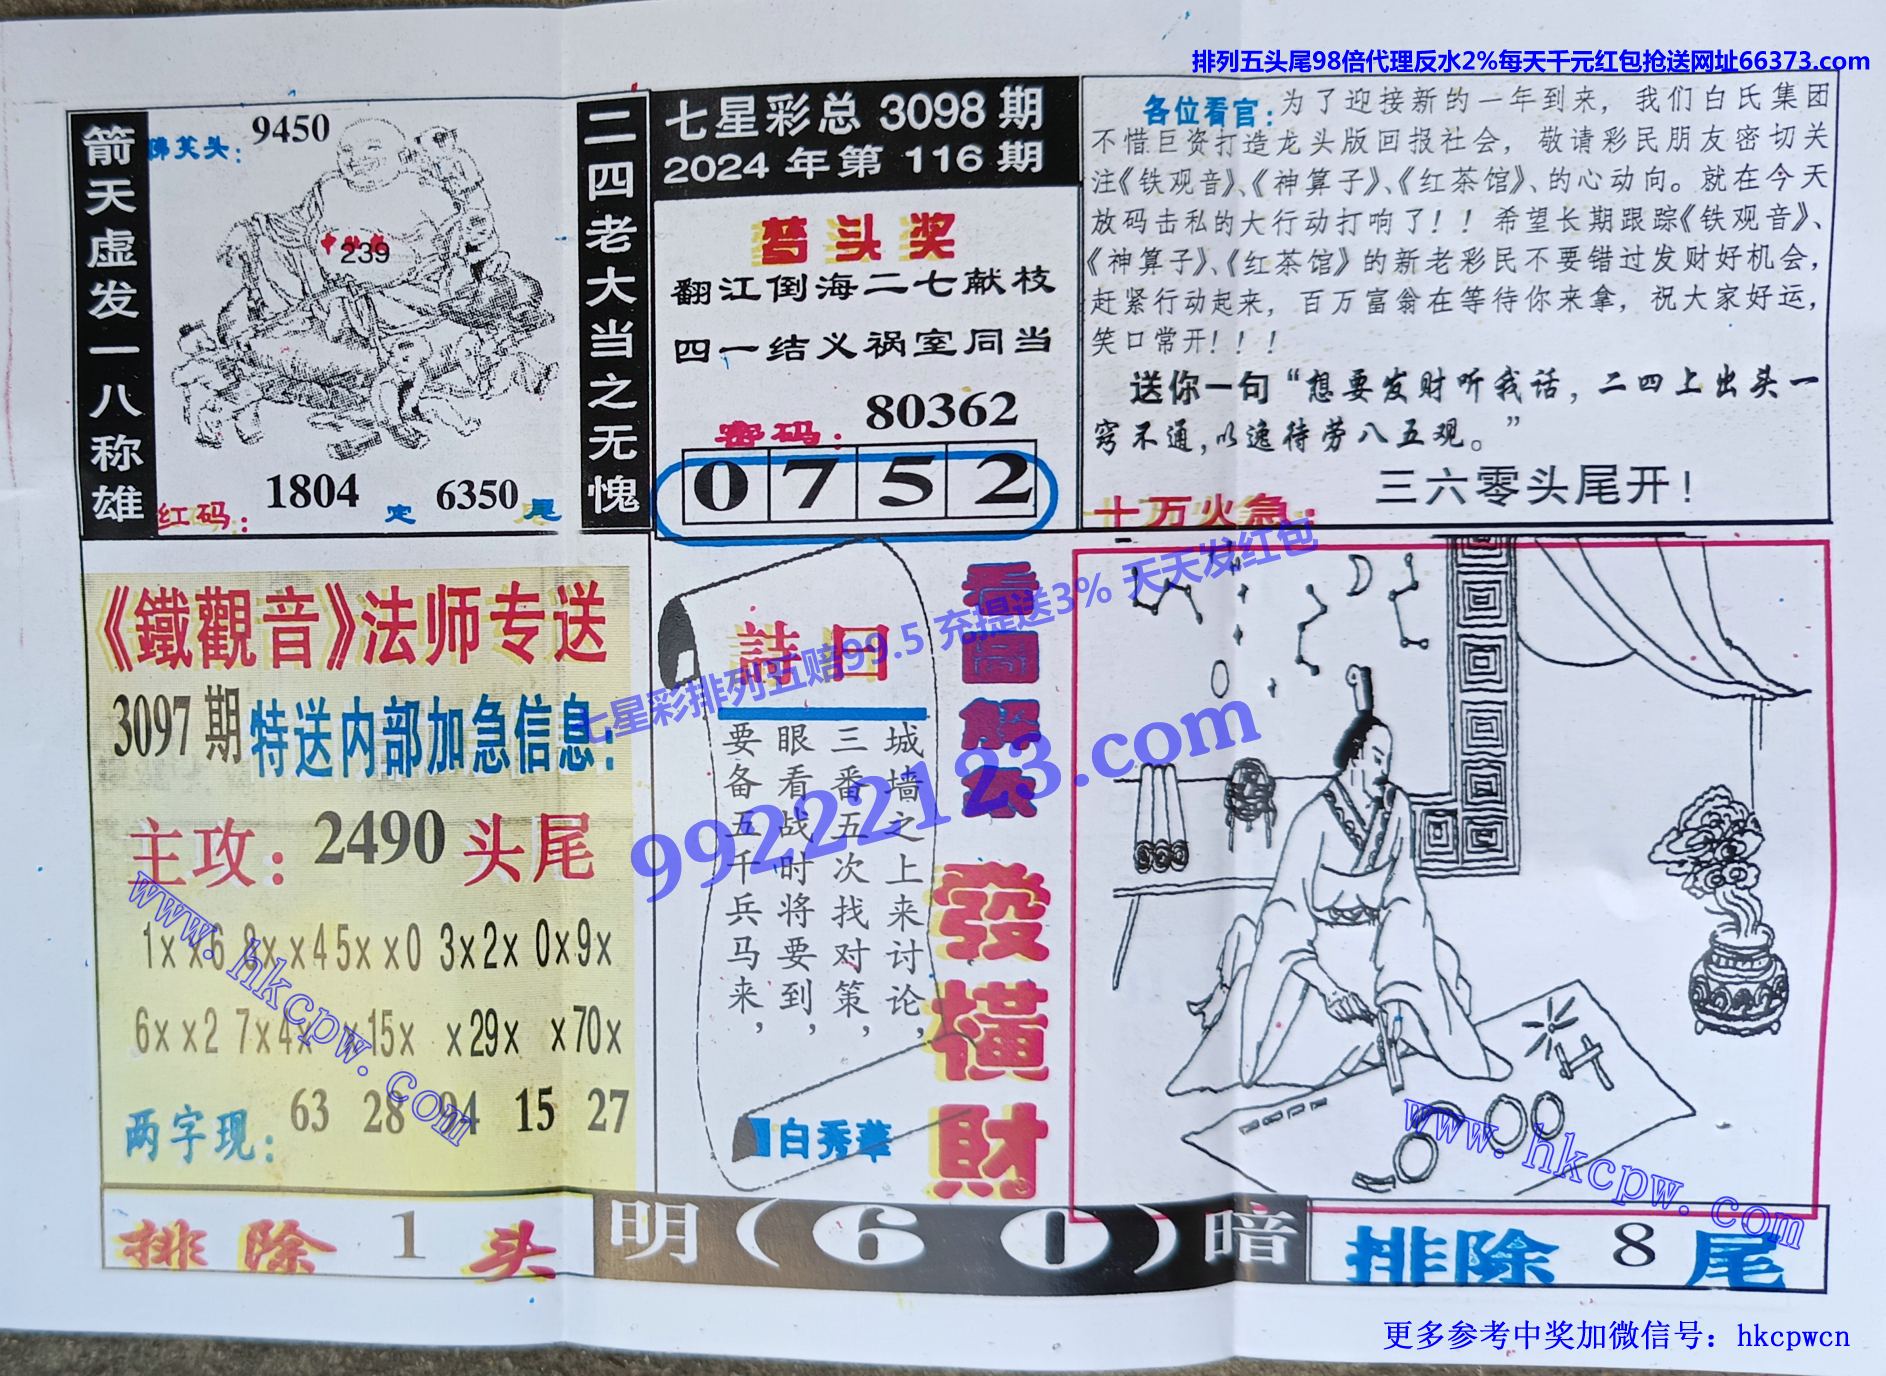 排列五头尾98倍代理反水2%每天千元红包抢送网址66373.com
箭天虚发一八称雄
佛笑头：9450
239
红码：1804 定 6350 尾
二四老大当之无愧
七星彩总 3098 期
2024 年第 116 期
头奖
翻江倒海二七献枝
四一结义祸室同当
密码：80362
0 7 5 2
各位看官：为了迎接新的一年到来，我们白氏集团
不惜巨资打造龙头版回报社会，敬请彩民朋友密切关
注《铁观音》、《神算子》、《红茶馆》、的心动向。就在今天
放码击私的大行动打响了！！希望长期跟踪《铁观音》、
《神算子》、《红茶馆》的新老彩民不要错过发财好机会，
赶紧行动起来，百万富翁在等待你来拿，祝大家好运，
笑口常开！！！
送你一句“想要发财听我话，二四上出头一
窍不通，以逸待劳八五观。”
三六零头尾开！
十万火急：
《鐵觀音》法师专送
3097 期 特送内部加急信息：
主攻：2490 头尾
1xx6 8xx4 5xx0 3x2x 0x9x
6xx2 7x4x x15x x29x x70x
两字现：63 28 94 15 27
詩曰
城墙之上来讨论，
三番五次找对策，
眼看战时将要到，
要备五千兵马来，
白秀華
看圖解
發橫財
七星彩排列五赔99.5 充提送3% 天天发红包
99222123.com
www.hkcpw.com
www.hkcpw.com
排除 1 头
明（60）暗
排除 8 尾
更多参考中奖加微信号：hkcpwcn